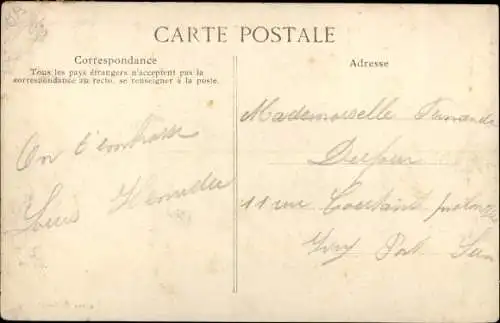 CARTE POSTALE
Correspondance
Tous les pays étrangers n'acceptent pas la
correspondance au recto, se renseigner à la poste.
Adresse
On t'embrasse
Mademoiselle
Dufour
11 rue
Ivry Port Seine